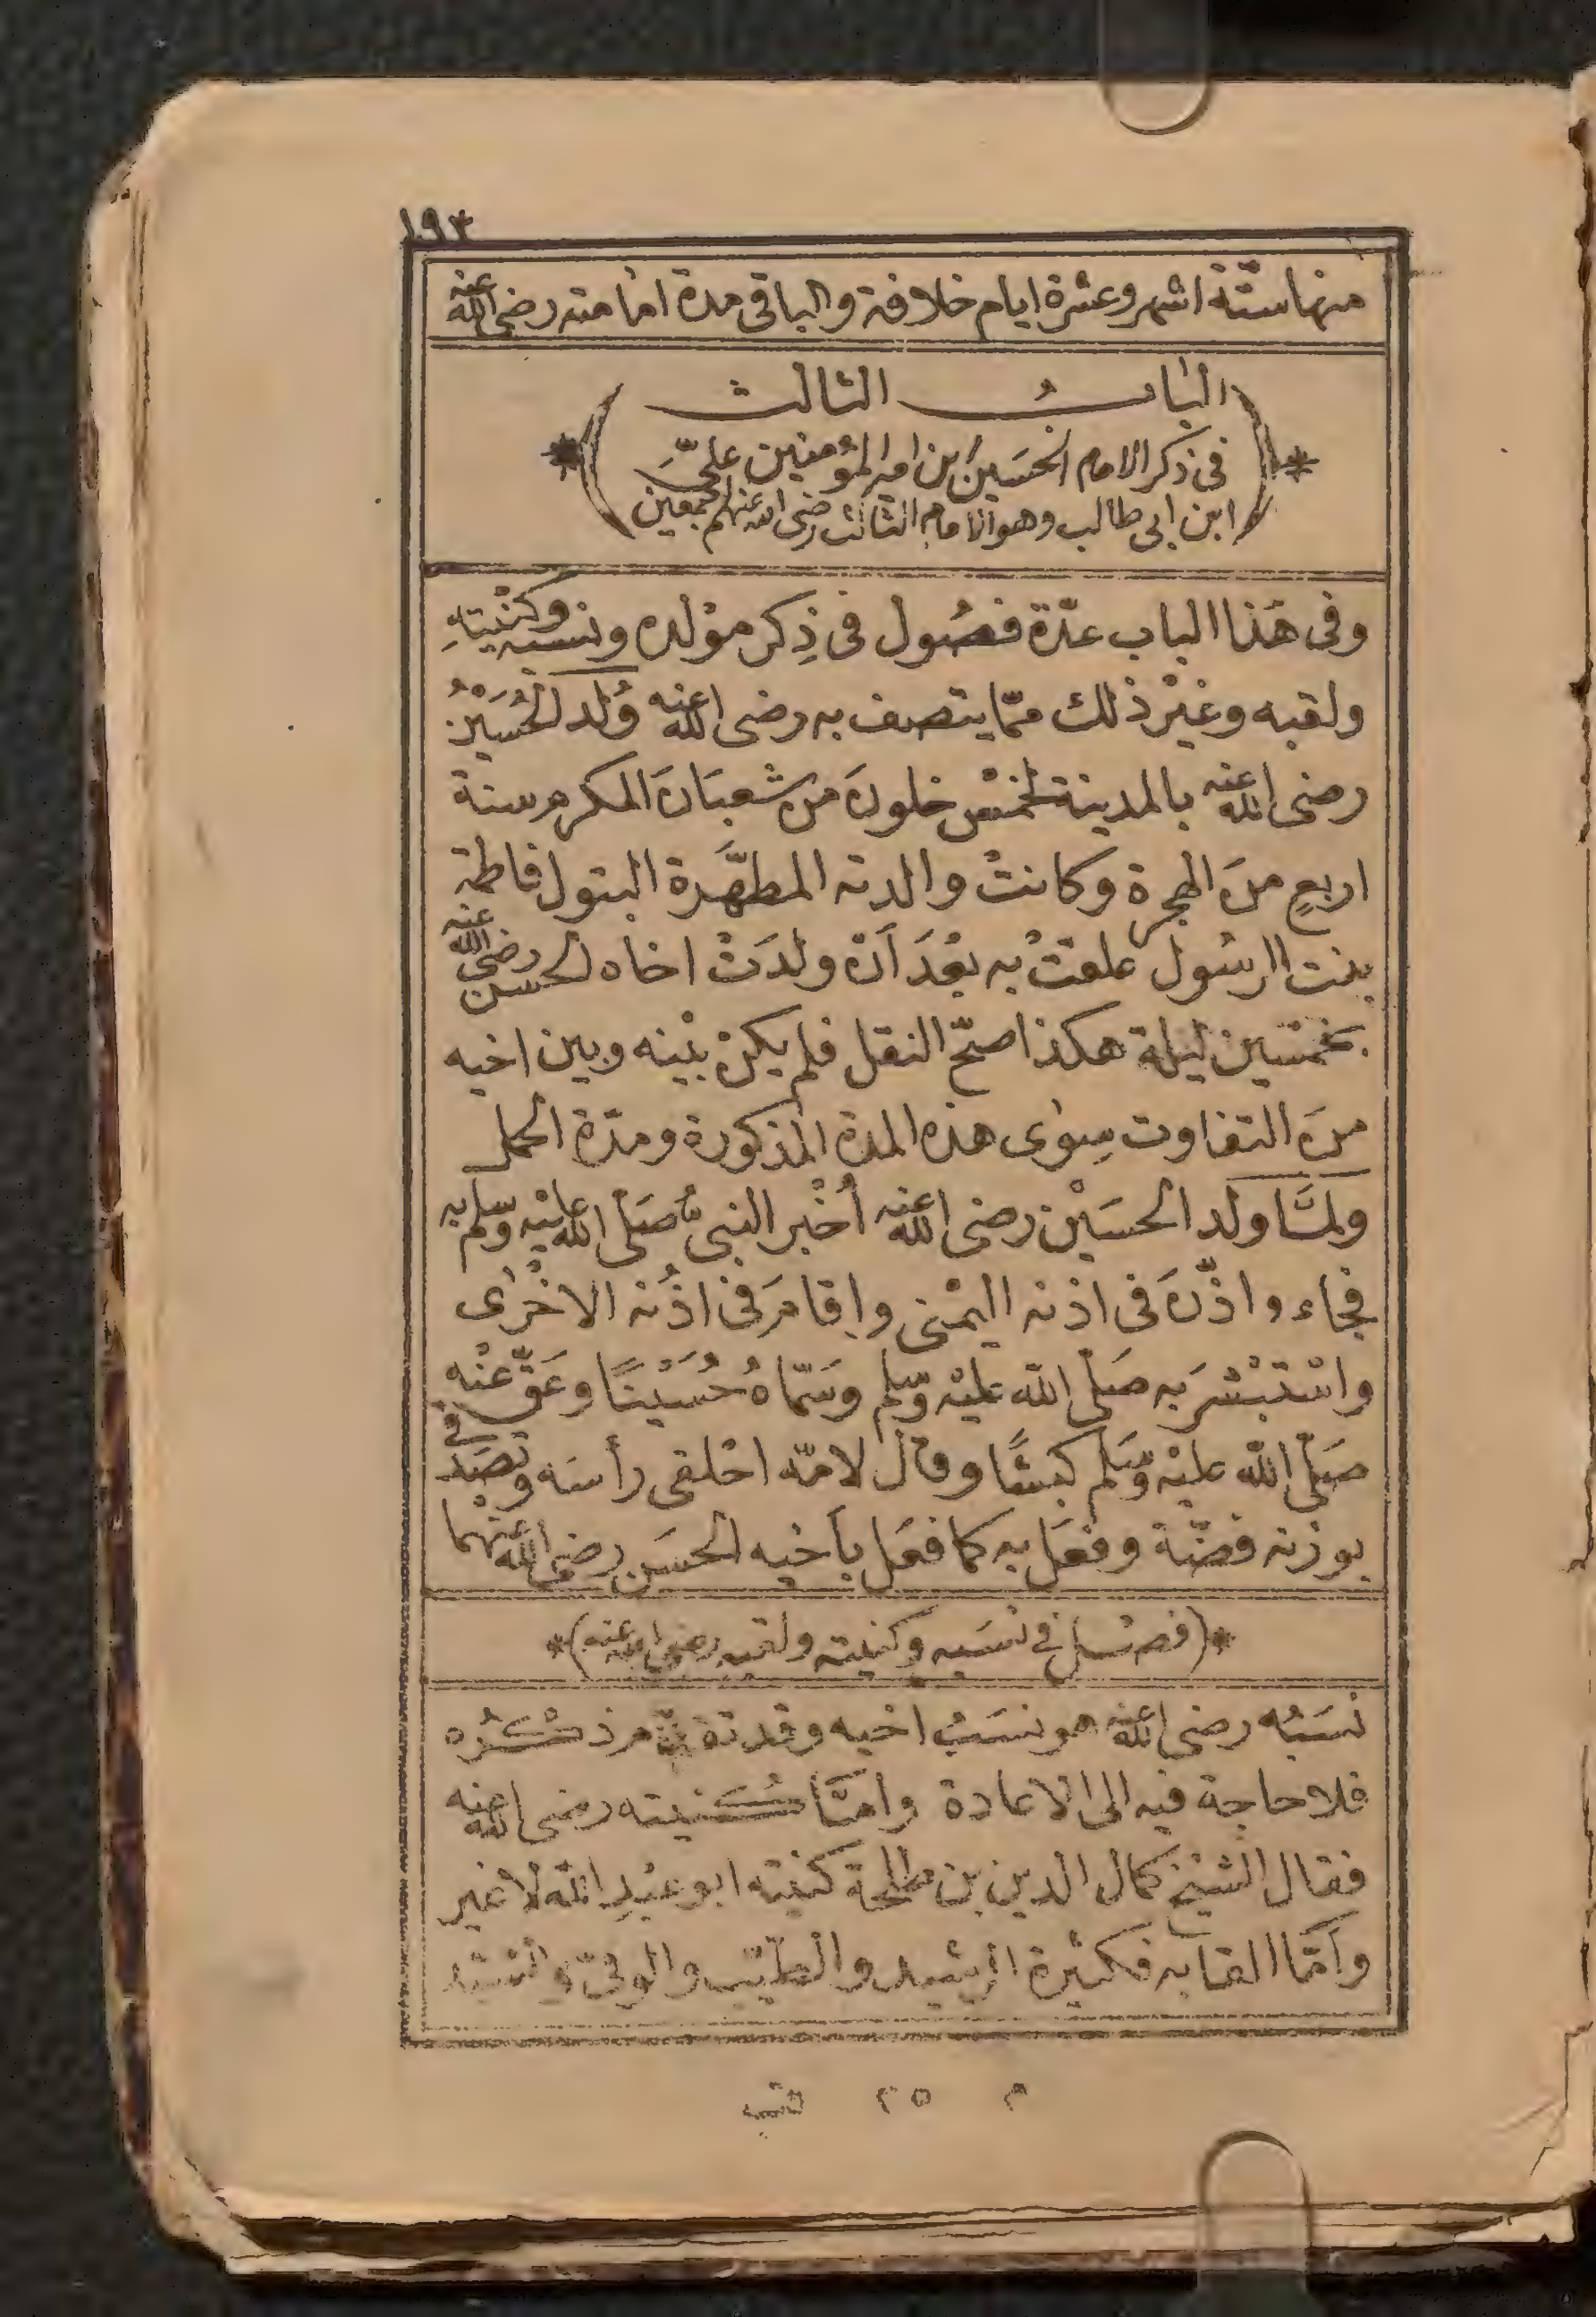 ١٩٣
منها ستّة اشهر وعشرة ايام خلافة والباقى مدة امامته رضى الله عنه
الباب الثالث
فى ذكر الامام الحسَين ابن امير المؤمنين علىّ
ابن ابى طالب وهو الامام الثالث رضى الله عنهم اجمعين
وفى هَذا الباب عدّة فصُول فى ذِكر موْلده ونسبه وكنْيتهِ
ولقبه وغيْر ذلك ممّا يتصف به رضى الله عنه وُلد الحُسَيْنُ
رضى الله عنه بالمدينة لخمْسٍ خلونَ منْ شعبَانَ المكرم سنة
اربعٍ منَ الهجرة وكانتْ والدته المطهَّرة البتول فاطمة
بنت الرسُول علقتْ به بعْدَ اَنْ ولدَتْ اخاه الحسن رضى الله عنه
بخمْسين ليلة هكذا صحّ النقل فلم يكنْ بيْنه وبين اخيه
منَ التفاوت سِوٰى هذه المدة المذكورة ومدّة الحمل
ولمَّا ولد الحسَيْن رضى الله عنه أُخْبر النبىُّ صَلّى الله عليْه وسلم به
فجاء واذّنَ فى اذنه اليمْنى واقامَ فى اذُنه الاخْرٰى
واسْتبْشرَ به صَلّى الله عليْه وسّلم وسَمّاهُ حُسَيْنًا وعَقَّ عنْه
صَلّى الله عليْه وسَّلم كبشًا وقال لامّه احْلقى رأسَه وتصَدّقى
بوزنه فضّة وفعَل به كما فعَل بأخيه الحسَن رضى الله عنهما
*(فصْل فى نسَبه وكنيته ولقبه رضى الله عنه)*
نسَبُه رضى الله عنه هو نسَبُ اخيه وقد تقدّم ذكْرُه
فلا حاجة فيه الى الاعادة وامَّا كُنيته رضى الله عنه
فقال الشيْخ كمال الدين بن طلحة كنيته ابو عبْدِ الله لا غير
وأمّا القابه فكثيرة الرشيد والطيّب والوفىّ والسّيّد
م ٢٥ قب